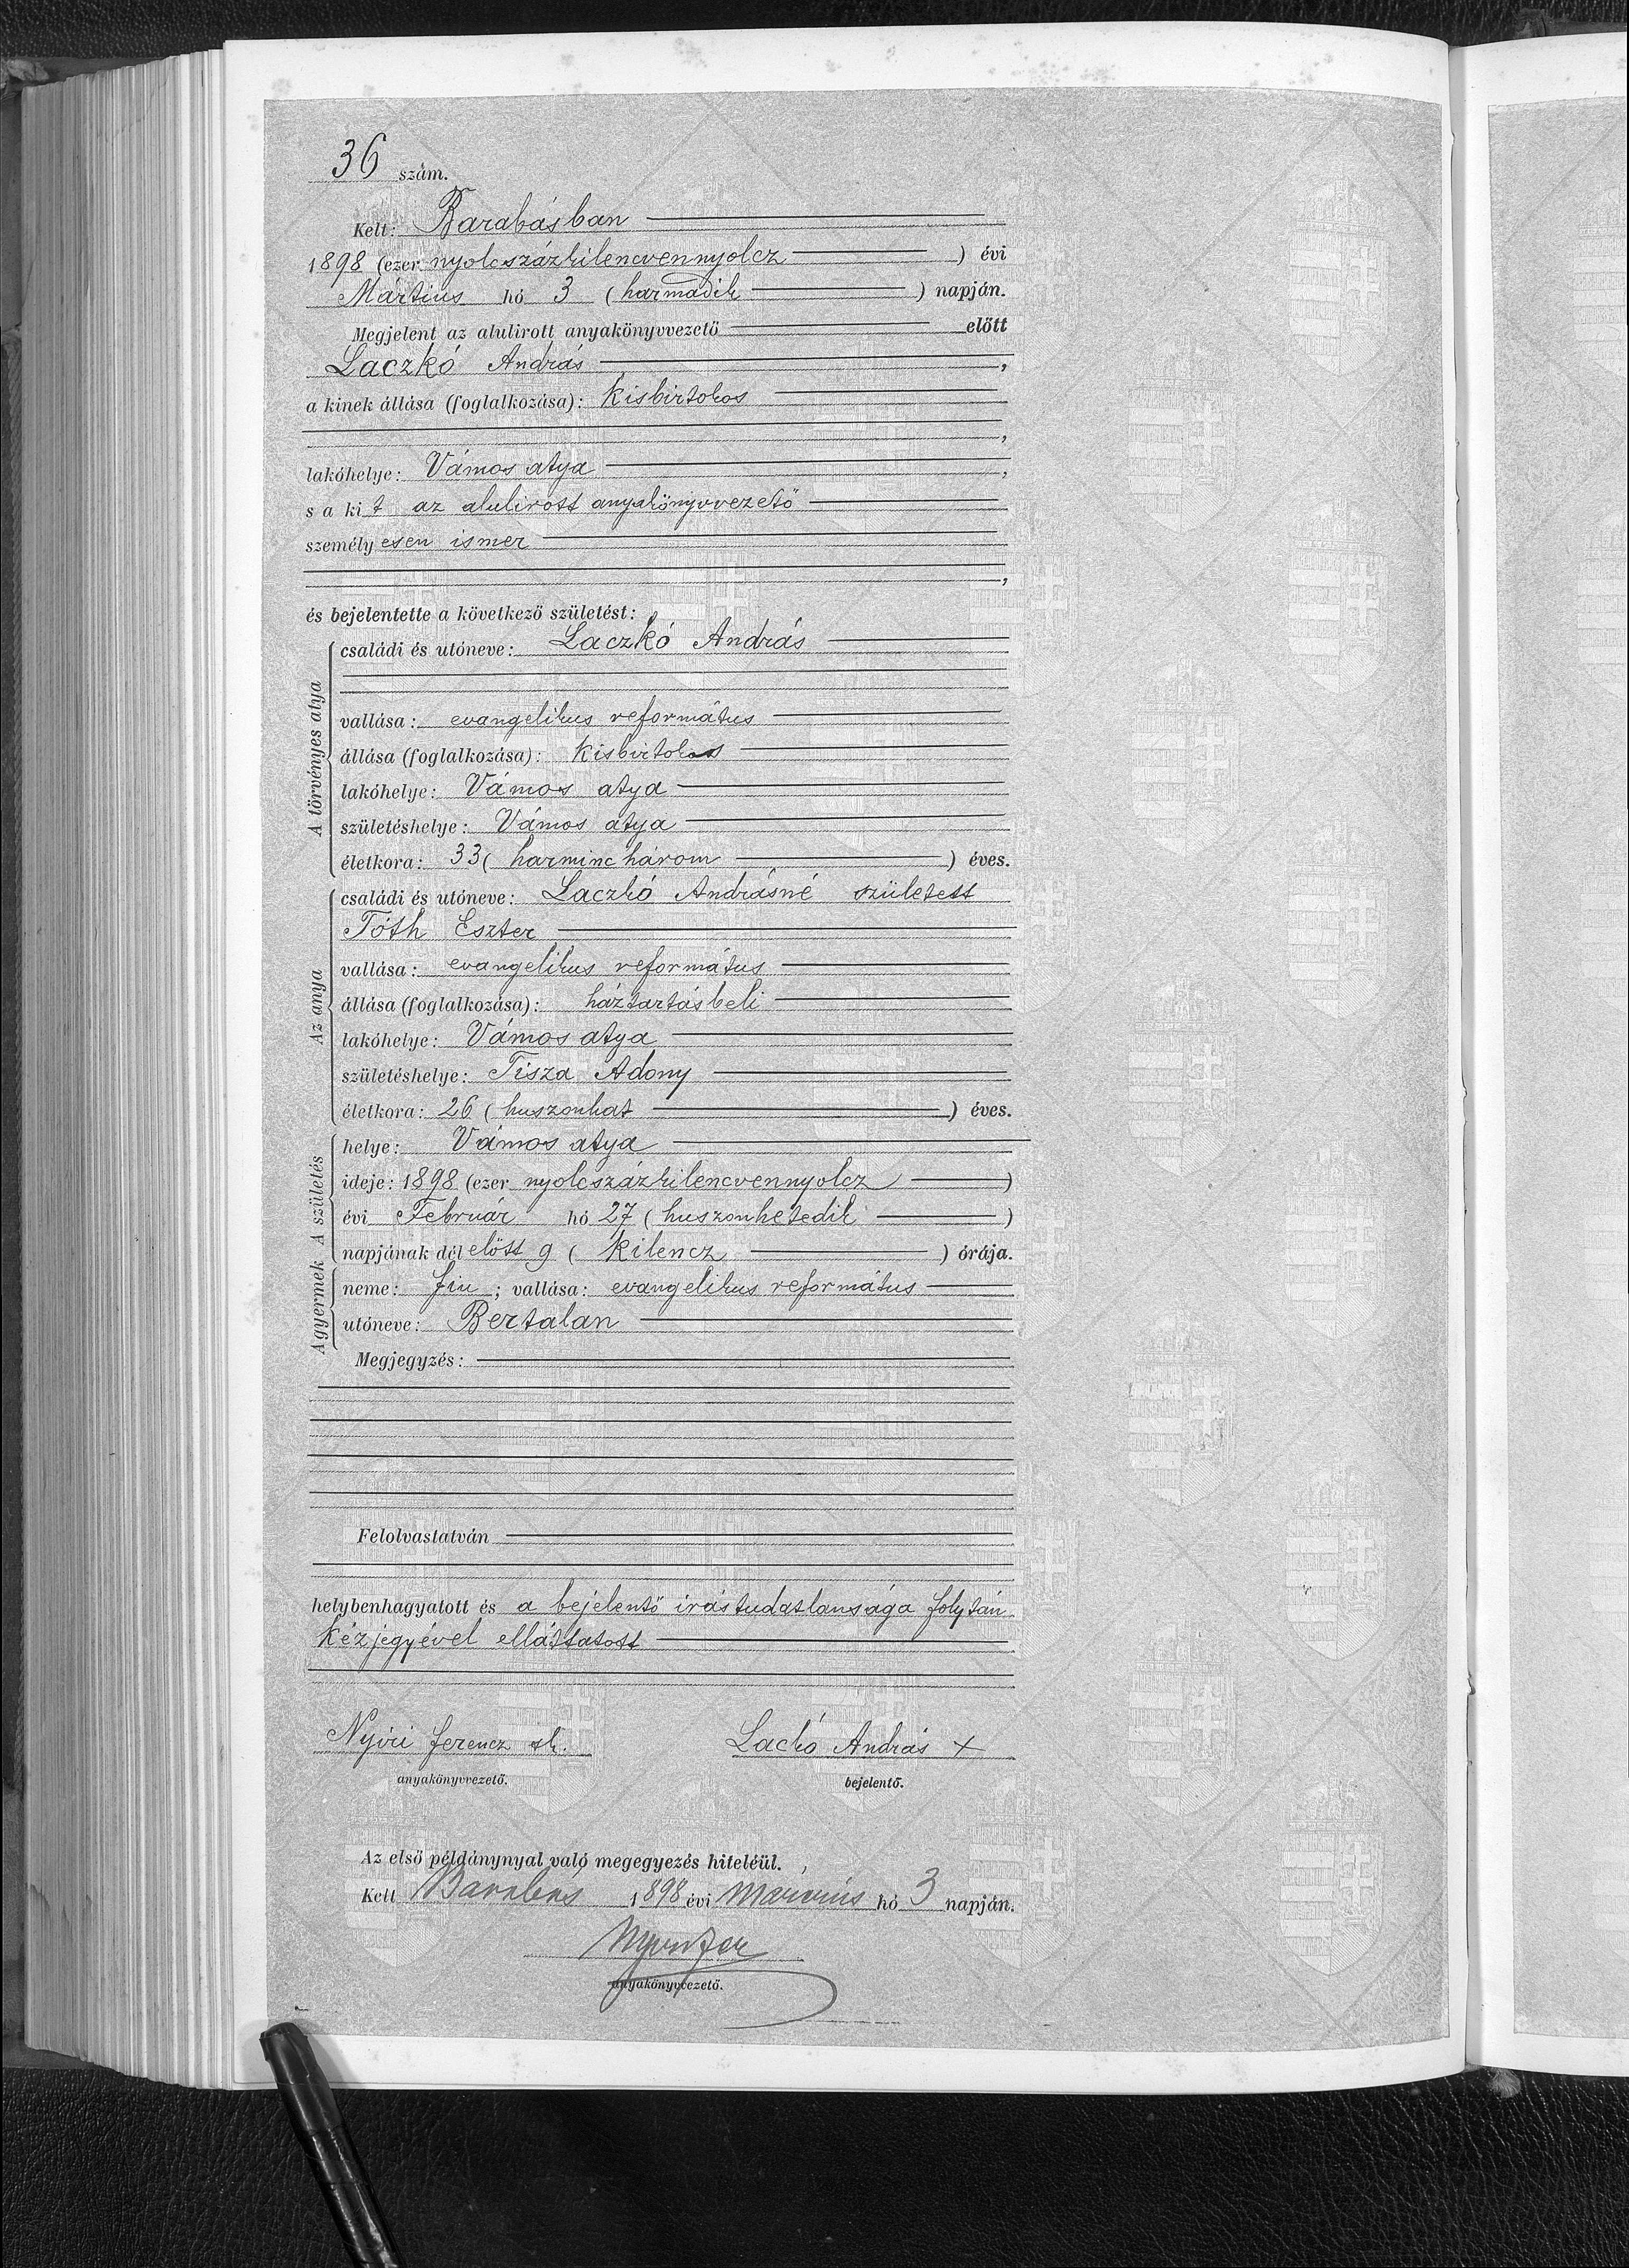 36 szám.
Kelt: Barabásban
1898 (ezer nyolcszázkilencvennyolcz ) évi
Mártius hó 3 (harmadik ) napján.
Megjelent az alulirott anyakönyvvezető előtt
Laczkó András ,
a kinek állása (foglalkozása): Kisbirtokos
,
lakóhelye: Vámos atya ,
s a kit az alulirott anyakönyvvezető
személyesen ismer
,
és bejelentette a következő születést:
A törvényes atya
családi és utóneve: Laczkó András
vallása: evangelikus református
állása (foglalkozása): Kisbirtokos
lakóhelye: Vámos atya
születéshelye: Vámos atya
életkora: 33 (harminchárom ) éves.
Az anya
családi és utóneve: Laczkó Andrásné született
Tóth Eszter
vallása: evangelikus református
állása (foglalkozása): háztartásbeli
lakóhelye: Vámos atya
születéshelye: Tisza Adony
életkora: 26 (huszonhat ) éves.
A születés
helye: Vámos atya
ideje: 1898 (ezer nyolcszázkilencvennyolcz )
évi Február hó 27 (huszonhetedik )
napjának dél előtt 9 (Kilencz ) órája.
A gyermek
neme: fiu ; vallása: evangelikus református
utóneve: Bertalan
Megjegyzés:
Felolvastatván
helybenhagyatott és a bejelentő irástudatlansága folytán
Kézjegyével elláttatott
Nyiri Ferencz sk. Lackó András +
anyakönyvvezető. bejelentő.
Az első példánynyal való megegyezés hiteléül.
Kelt Barabás 1898 évi Marcius hó 3 napján.
anyakönyvvezető.